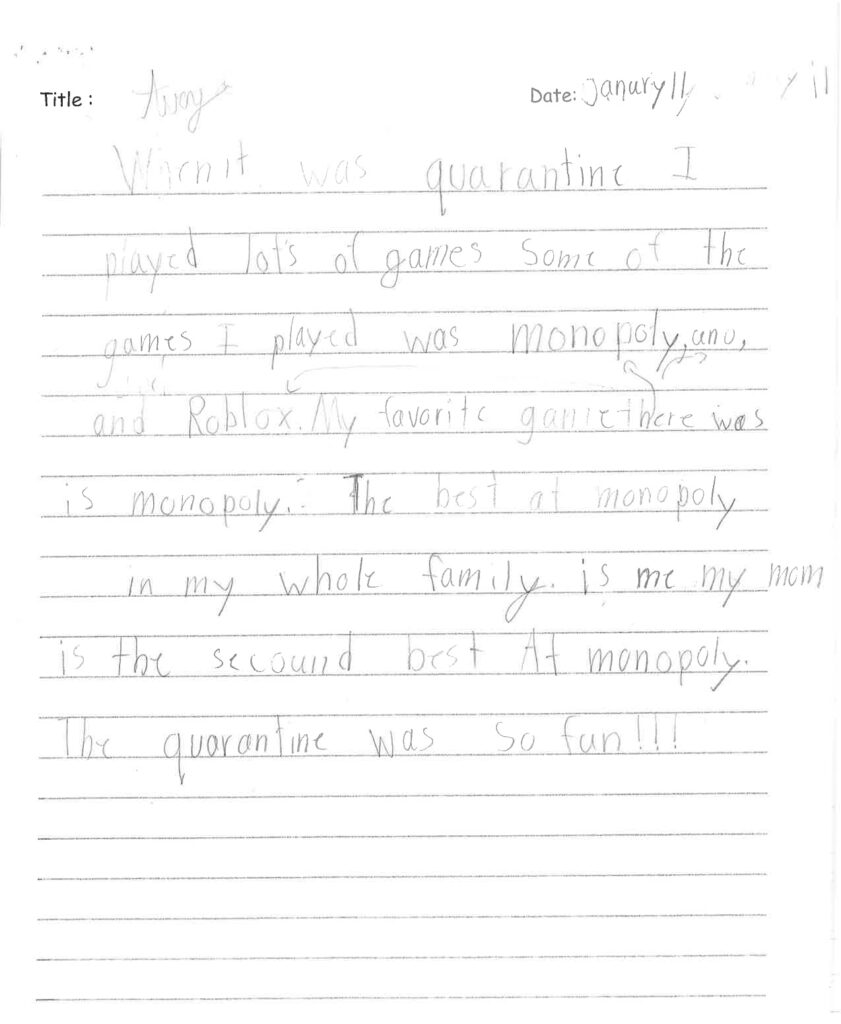 Title :
Date: Janury 11
When it was quarantine I
played lot's of games Some of the
games I played was monopoly, uno,
and Roblox. My favorite game there was
is monopoly. The best at monopoly
in my whole family. is me my mom
is the secound best At monopoly.
The quarantine was so fun!!!